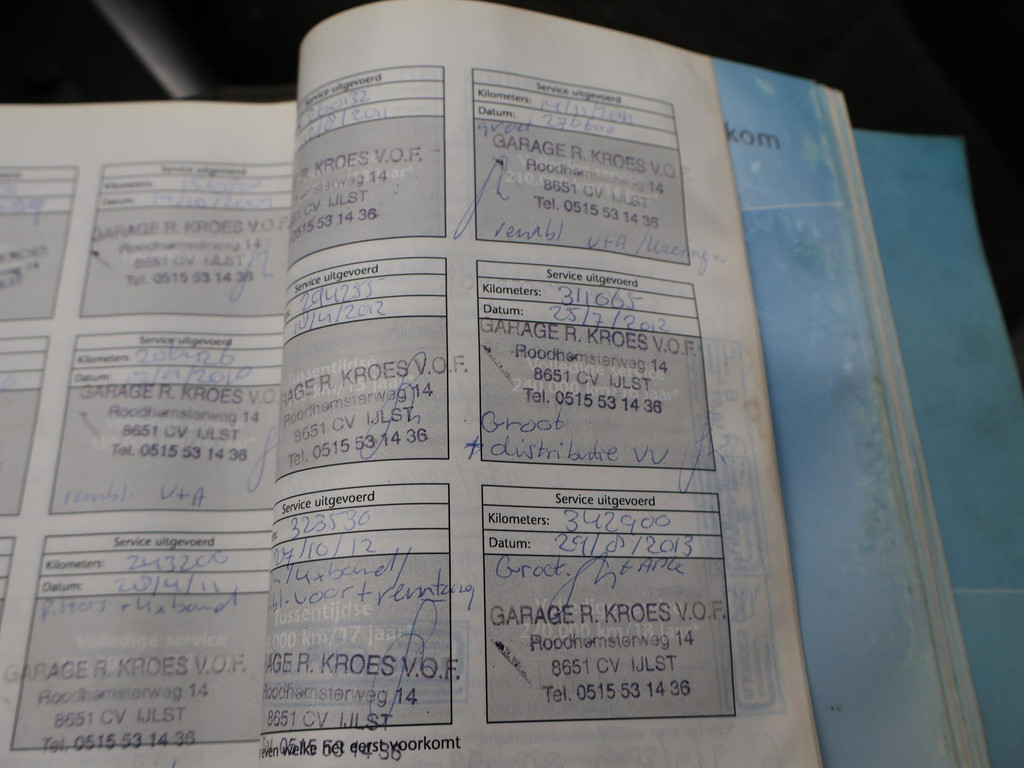 Service uitgevoerd
Kilometers:
Datum:
GARAGE R. KROES V.O.
Roodhemsterweg 14
8651 CV IJLST
Tel. 0515 53 14 36
Service uitgevoerd
Kilometers:
Datum:
GARAGE R. KROES V.O
Roodhemsterweg 14
8651 CV IJLST
Tel. 0515 53 14 36
rembl. V+A
Service uitgevoerd
Kilometers: 243200
Datum: 28/4/11
filters + 4x band
Volledige service
GARAGE R. KROES V.O.F.
Roodhemsterweg 14
8651 CV IJLST
Tel. 0515 53 14 36
Service uitgevoerd
R. KROES V.O.F.
msterweg 14
CV IJLST
515 53 14 36
Service uitgevoerd
294255
/4/2012
AGE R. KROES V.O.F.
Roodhemsterweg 14
8651 CV IJLST
Tel. 0515 53 14 36
Service uitgevoerd
323530
/10/12
4xband/
Tussentijdse
000 km/17 jaar
AGE R. KROES V.O.F.
Roodhemsterweg 14
8651 CV IJLST
0515 53 14 36
even welke het eerst voorkomt
Service uitgevoerd
Kilometers: 14/12/2011
Datum: 276600
groot
GARAGE R. KROES V.O.F.
Roodhemsterweg 14
8651 CV IJLST
Tel. 0515 53 14 36
rembl V+A /keeringen
Service uitgevoerd
Kilometers: 311665
Datum: 25/7/2012
GARAGE R. KROES V.O.F.
Roodhemsterweg 14
8651 CV IJLST
Tel. 0515 53 14 36
Groot
+ distributie VV
Service uitgevoerd
Kilometers: 342900
Datum: 29/8/2013
Groot. + APK
GARAGE R. KROES V.O.F.
Roodhemsterweg 14
8651 CV IJLST
Tel. 0515 53 14 36
kom